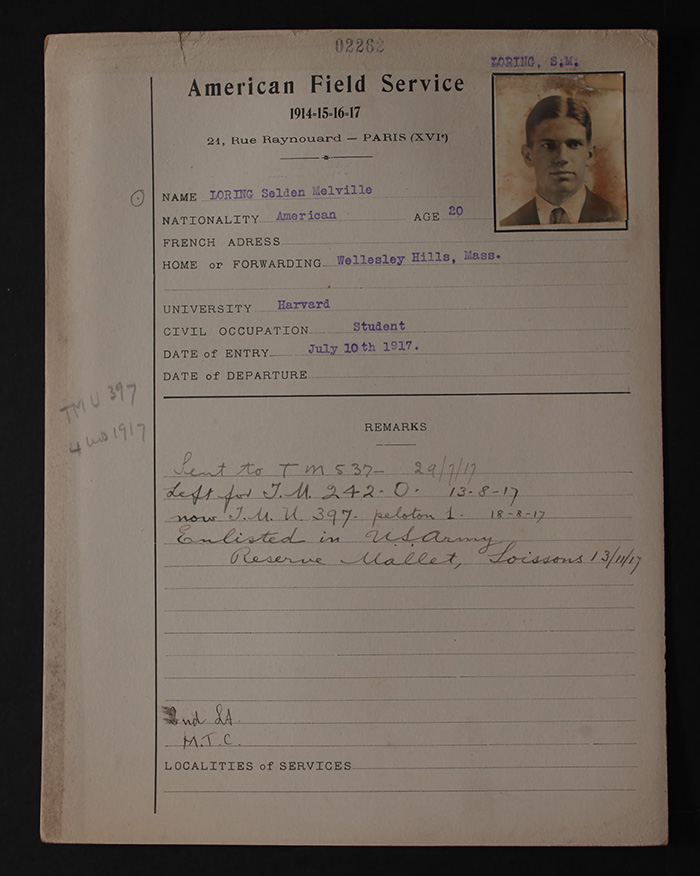 02262
LORING, S.M.
American Field Service
1914-15-16-17
21, Rue Raynouard — PARIS (XVIe)
NAME LORING Selden Melville
NATIONALITY American AGE 20
FRENCH ADRESS
HOME or FORWARDING Wellesley Hills, Mass.
UNIVERSITY Harvard
CIVIL OCCUPATION Student
DATE of ENTRY July 10th 1917.
DATE of DEPARTURE
TMU 397
4 1917
REMARKS
Sent to TM 537- 29/7/17
Left for T.M. 242-O- 13-8-17
now T.M.U. 397- peloton 1- 18-8-17
Enlisted in U.S. Army
Reserve Mallet, Soissons 13/11/17
2nd Lt.
M.T.C.
LOCALITIES of SERVICES